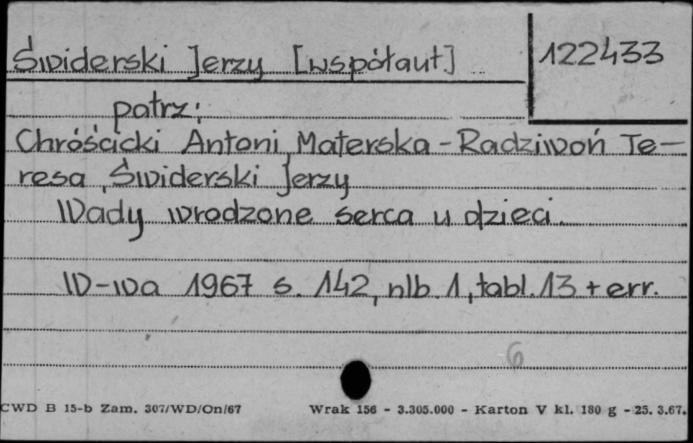 Świderski Jerzy [współaut]
122433
patrz:
Chróścicki Antoni, Materska-Radziwoń Te-
resa, Świderski Jerzy
Wady wrodzone serca u dzieci.
W-wa 1967 s. 142, nlb. 1, tabl. 13 + err.
6
CWD B 15-b Zam. 307/WD/On/67 Wrak 156 - 3.305.000 - Karton V kl. 180 g - 25. 3.67.